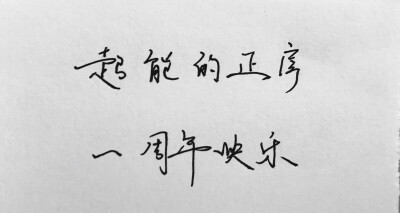 超能的正序
一周年快乐